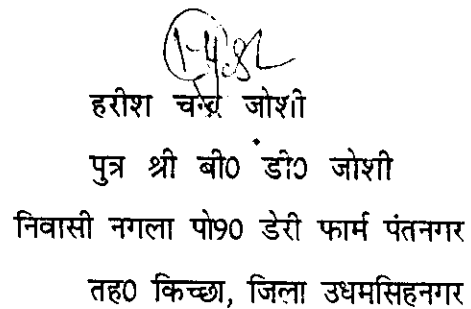 हरीश चन्द्र जोशी
पुत्र श्री बी0 डी0 जोशी
निवासी नगला पो90 डेरी फार्म पंतनगर
तह0 किच्छा, जिला उधमसिहनगर